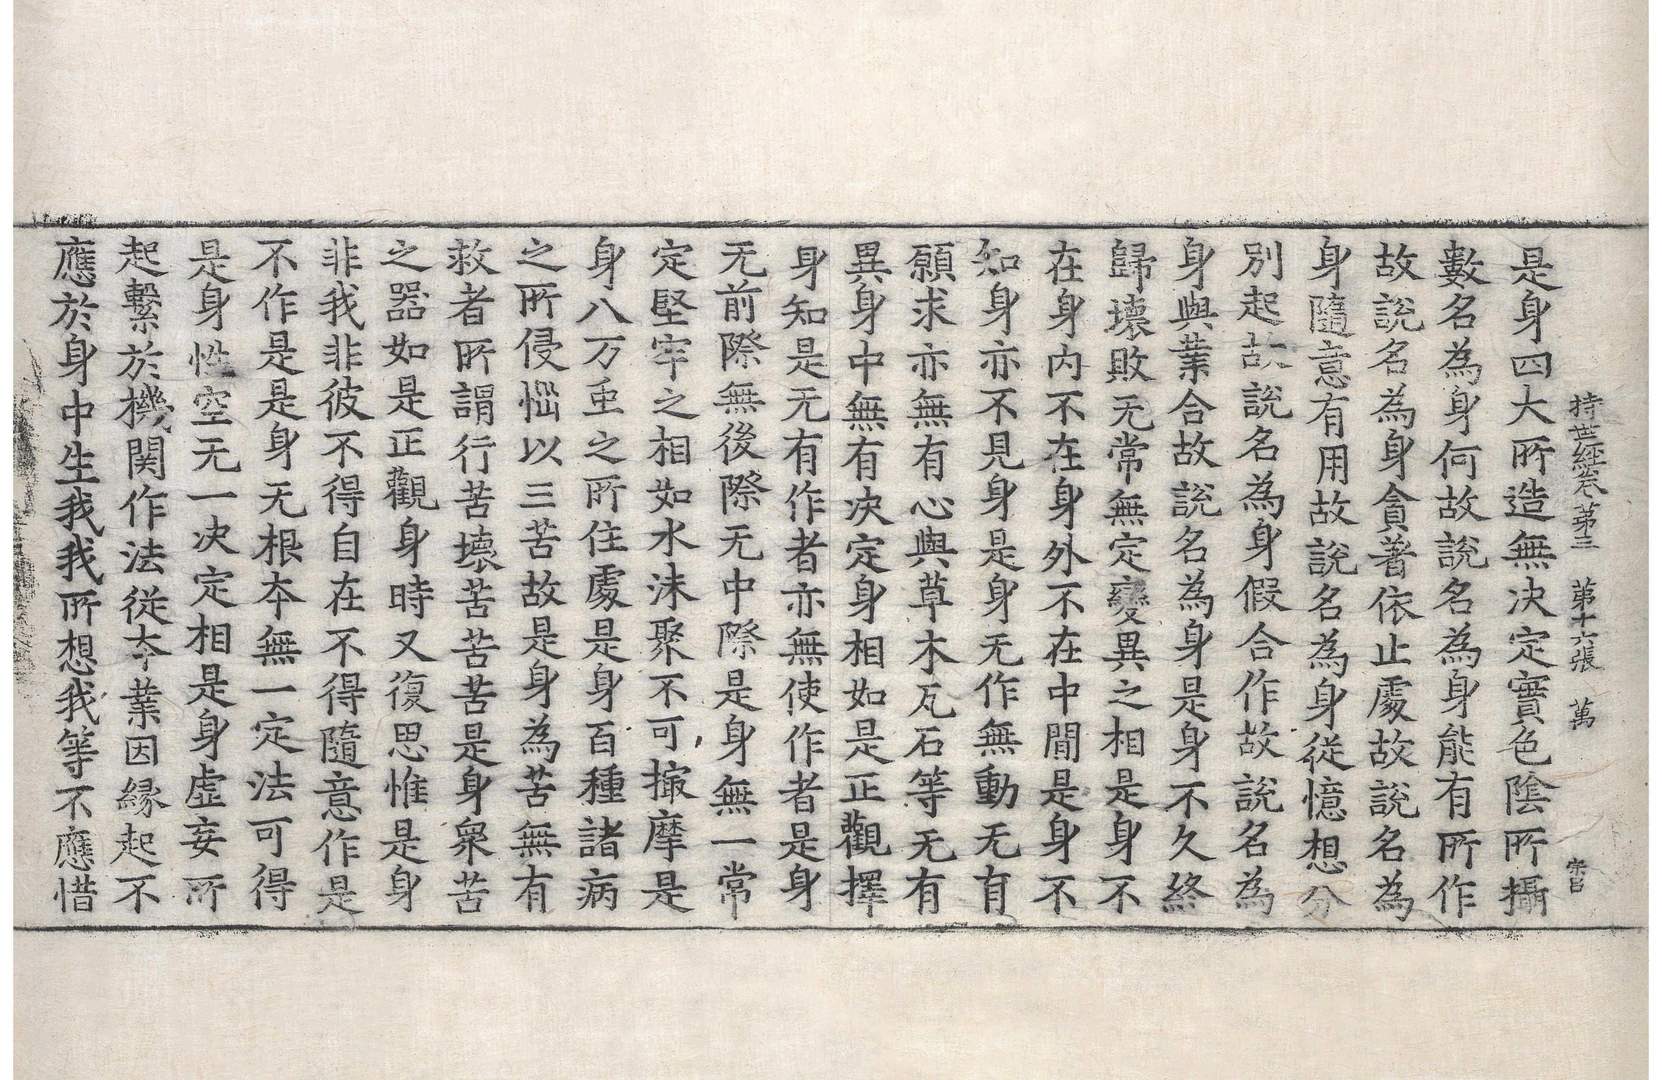 持世経卷第三　第十六張　萬　宋呂
是身四大所造無決定實色陰所攝
數名為身何故說名為身能有所作
故說名為身貪著依止處故說名為
身隨意有用故說名為身従憶想分
別起故說名為身假合作故說名為
身與業合故說名為身是身不久終
歸壞敗无常無定變異之相是身不
在身内不在身外不在中閒是身不
知身亦不見身是身无作無動无有
願求亦無有心與草木瓦石等无有
異身中無有決定身相如是正觀擇
身知是无有作者亦無使作者是身
无前際無後際无中際是身無一常
定堅牢之相如水沫聚不可撮摩是
身八万虫之所住處是身百種諸病
之所侵惱以三苦故是身為苦無有
救者所謂行苦壞苦苦苦是身衆苦
之器如是正觀身時又復思惟是身
非我非彼不得自在不得隨意作是
不作是是身无根本無一定法可得
是身性空无一決定相是身虛妄所
起繫於機関作法従本業因縁起不
應於身中生我我所想我等不應惜